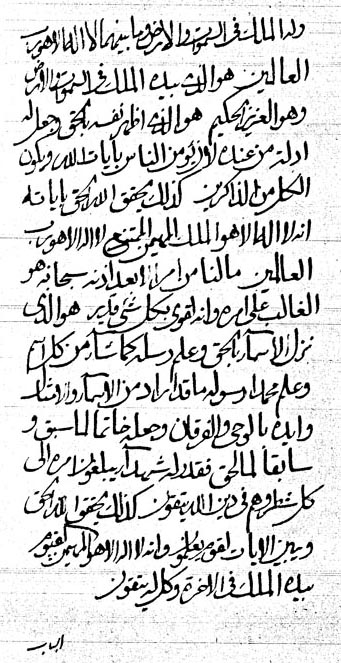 وله الملك في السموات والارض وما بينهما لا اله الا هو رب
العالمين هو الذي بيده الملك في السموات والارض
وهو العزيز الحكيم هو الذي اظهر نفسه بالحق وجعل له
ادلة من عنده لا يؤمن الناس بايات الله ويكون
الكل من الذاكرين كذلك يحقق الله الحق باياته
انه لا اله الا هو الملك المهيمن الممتنع لا اله الا هو رب
العالمين ما لنا من امر الا بعد اذنه سبحانه هو
الغالب على امره وانه لقوي بكل شيء قدير هو الذي
نزل الاسماء بالحق وعلم رسله كما شاء من كل اسم
وعلم محمدا رسوله ما قد اراد من الاسماء والامثال
وايده بالوحي والفرقان وجعله خاتما لما سبق و
سابقا لما لحق فقدر له شهداء يبلغون امره الى
كل شطر وهم في دين الله يتقون كذلك يحقق الله الحق
ويبين الايات لقوم يعلمون وانه لا اله الا هو المهيمن القيوم
بيده الملك في الاخرة وكل له يتقون